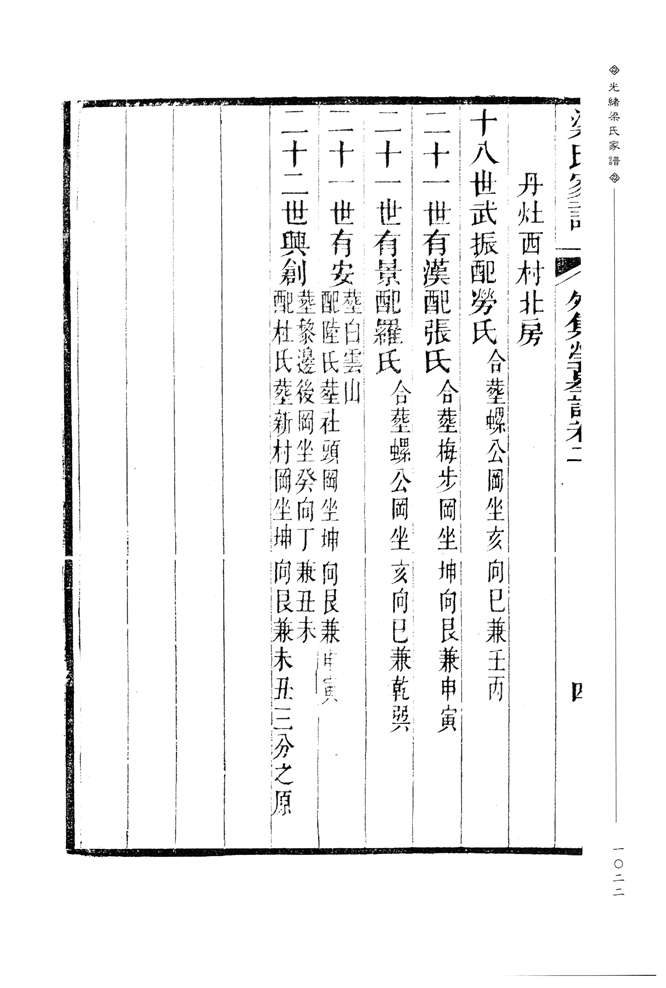 光緒梁氏家譜
一〇二二
梁氏家譜 外集塋墓譜卷二 四
丹灶西村北房
十八世武振配勞氏 合塟螺公岡坐亥向巳兼壬丙
二十一世有漢配張氏 合塟梅步岡坐坤向艮兼申寅
二十一世有景配羅氏 合塟螺公岡坐亥向巳兼乾巽
二十一世有安 塟白雲山
配陸氏塟社頭岡坐坤向艮兼申寅
二十二世興創 塟黎邊後岡坐癸向丁兼丑未
配杜氏塟新村岡坐坤向艮兼未丑三分之原